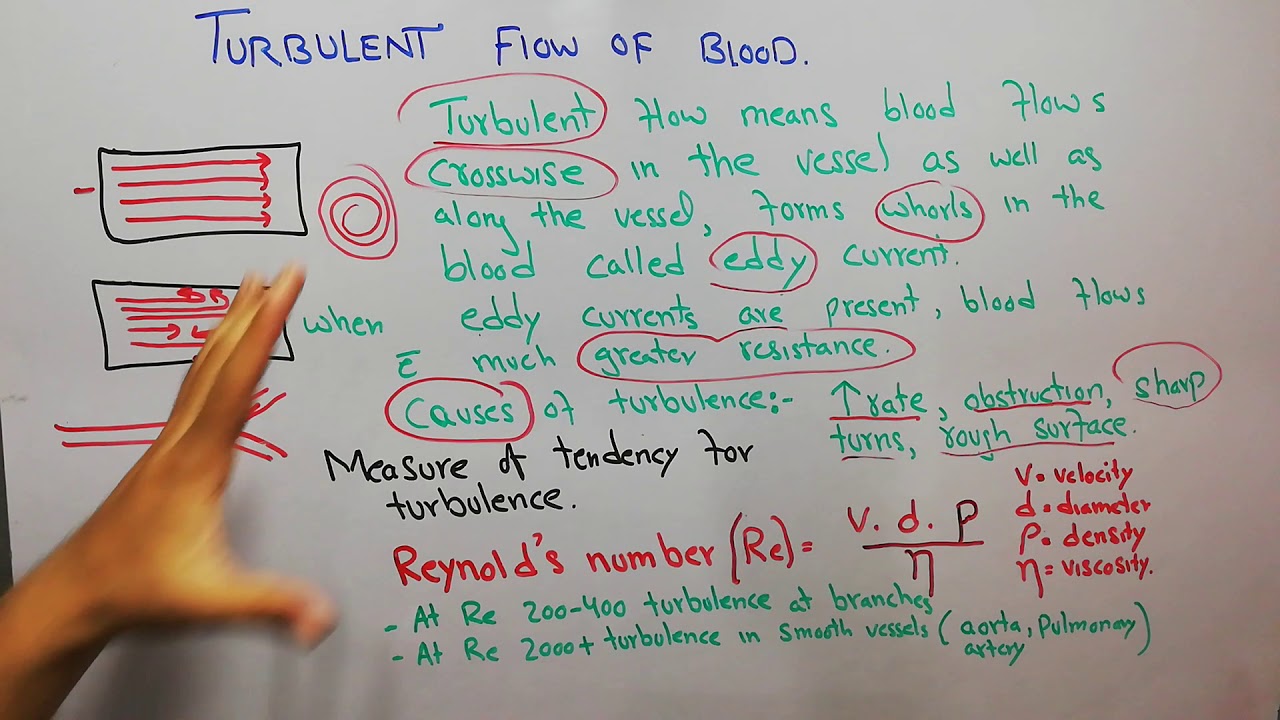 TURBULENT FLOW OF BLOOD.
Turbulent flow means blood flows
crosswise in the vessel as well as
along the vessel, forms whorls in the
blood called eddy current.
when eddy currents are present, blood flows
c̄ much greater resistance.
Causes of turbulence:- ↑ rate, obstruction, sharp
turns, rough surface.
Measure of tendency for
turbulence.
Reynold's number (Re) = v. d. ρ / η
v = velocity
d = diameter
ρ = density
η = viscosity.
- At Re 200-400 turbulence at branches
- At Re 2000+ turbulence in smooth vessels (aorta, Pulmonary
artery)